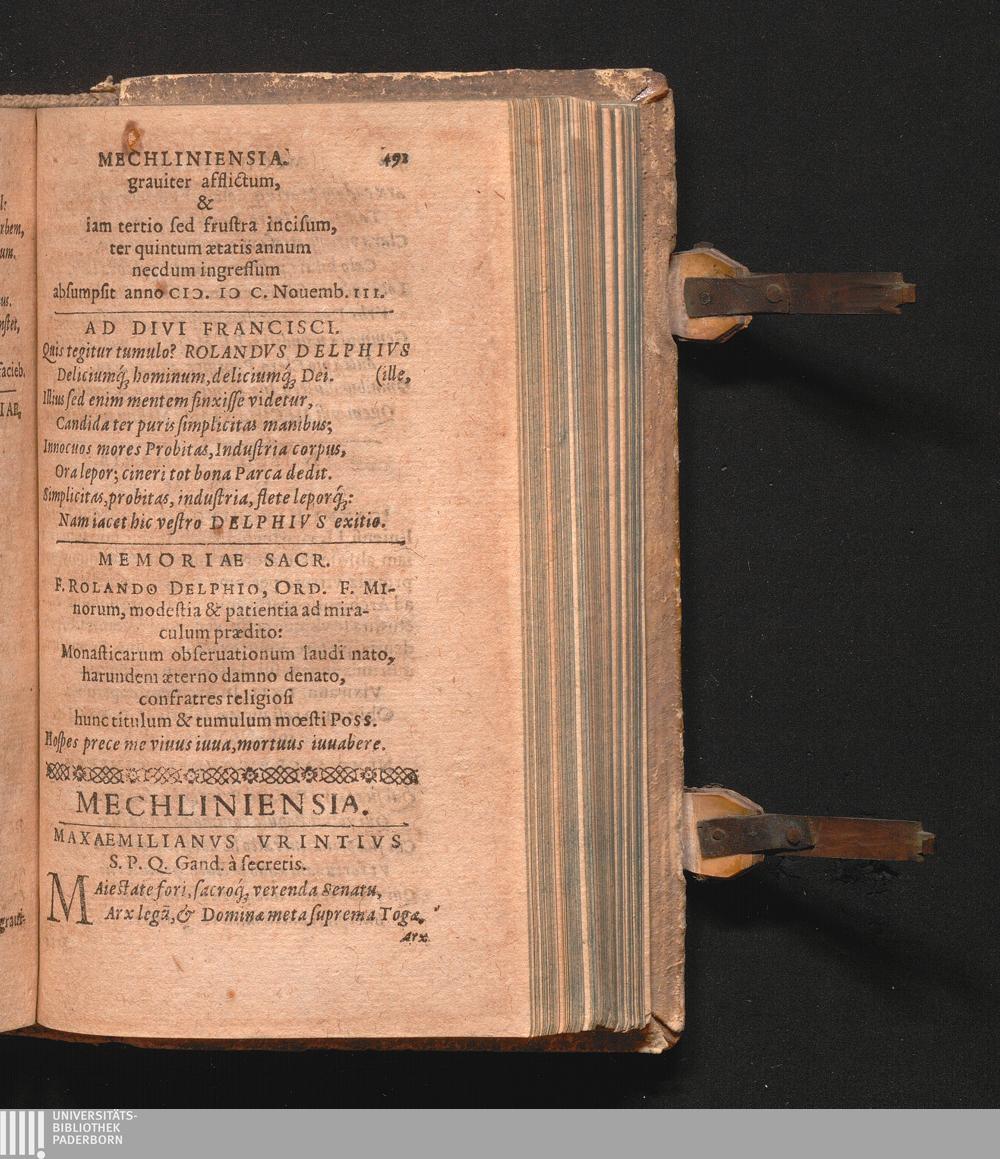 MECHLINIENSIA. 491
grauiter afflictum,
&
iam tertio sed frustra incisum,
ter quintum ætatis annum
necdum ingressum
absumpsit anno CIↃ. IↃ C. Nouemb. III.
AD DIVI FRANCISCI.
Quis tegitur tumulo? ROLANDVS DELPHIVS
Deliciumq́; hominum, deliciumq́; Dei. (ille,
Illius sed enim mentem finxisse videtur,
Candida ter puris simplicitas manibus;
Innocuos mores Probitas, Industria corpus,
Ora lepor; cineri tot bona Parca dedit.
Simplicitas, probitas, industria, flete leporq́;:
Nam iacet hic vestro DELPHIVS exitio.
MEMORIAE SACR.
F. ROLANDO DELPHIO, ORD. F. MI-
norum, modestia & patientia ad mira-
culum prædito:
Monasticarum obseruationum laudi nato,
harundem æterno damno denato,
confratres religiosi
hunc titulum & tumulum mœsti Poss.
Hospes prece me viuus iuua, mortuus iuuabere.
MECHLINIENSIA.
MAXAEMILIANVS VRINTIVS
S. P. Q. Gand. à secretis.
MAiestate fori, sacroq́; verenda Senatu,
Arx legũ, & Dominæ meta suprema Togæ,
Arx
l:
rbem,
um.
us.
nstet,
facieb.
IAE,
graui-
UNIVERSITÄTS-
BIBLIOTHEK
PADERBORN